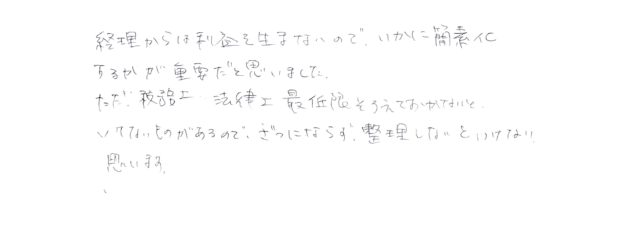 経理からは利益を生まないので、いかに簡素化
するかが重要だと思いました。
ただ、税務上、法律上最低限そろえておかないと、
いけないものがあるので、ざつにならず、整理しないといけない
思います。